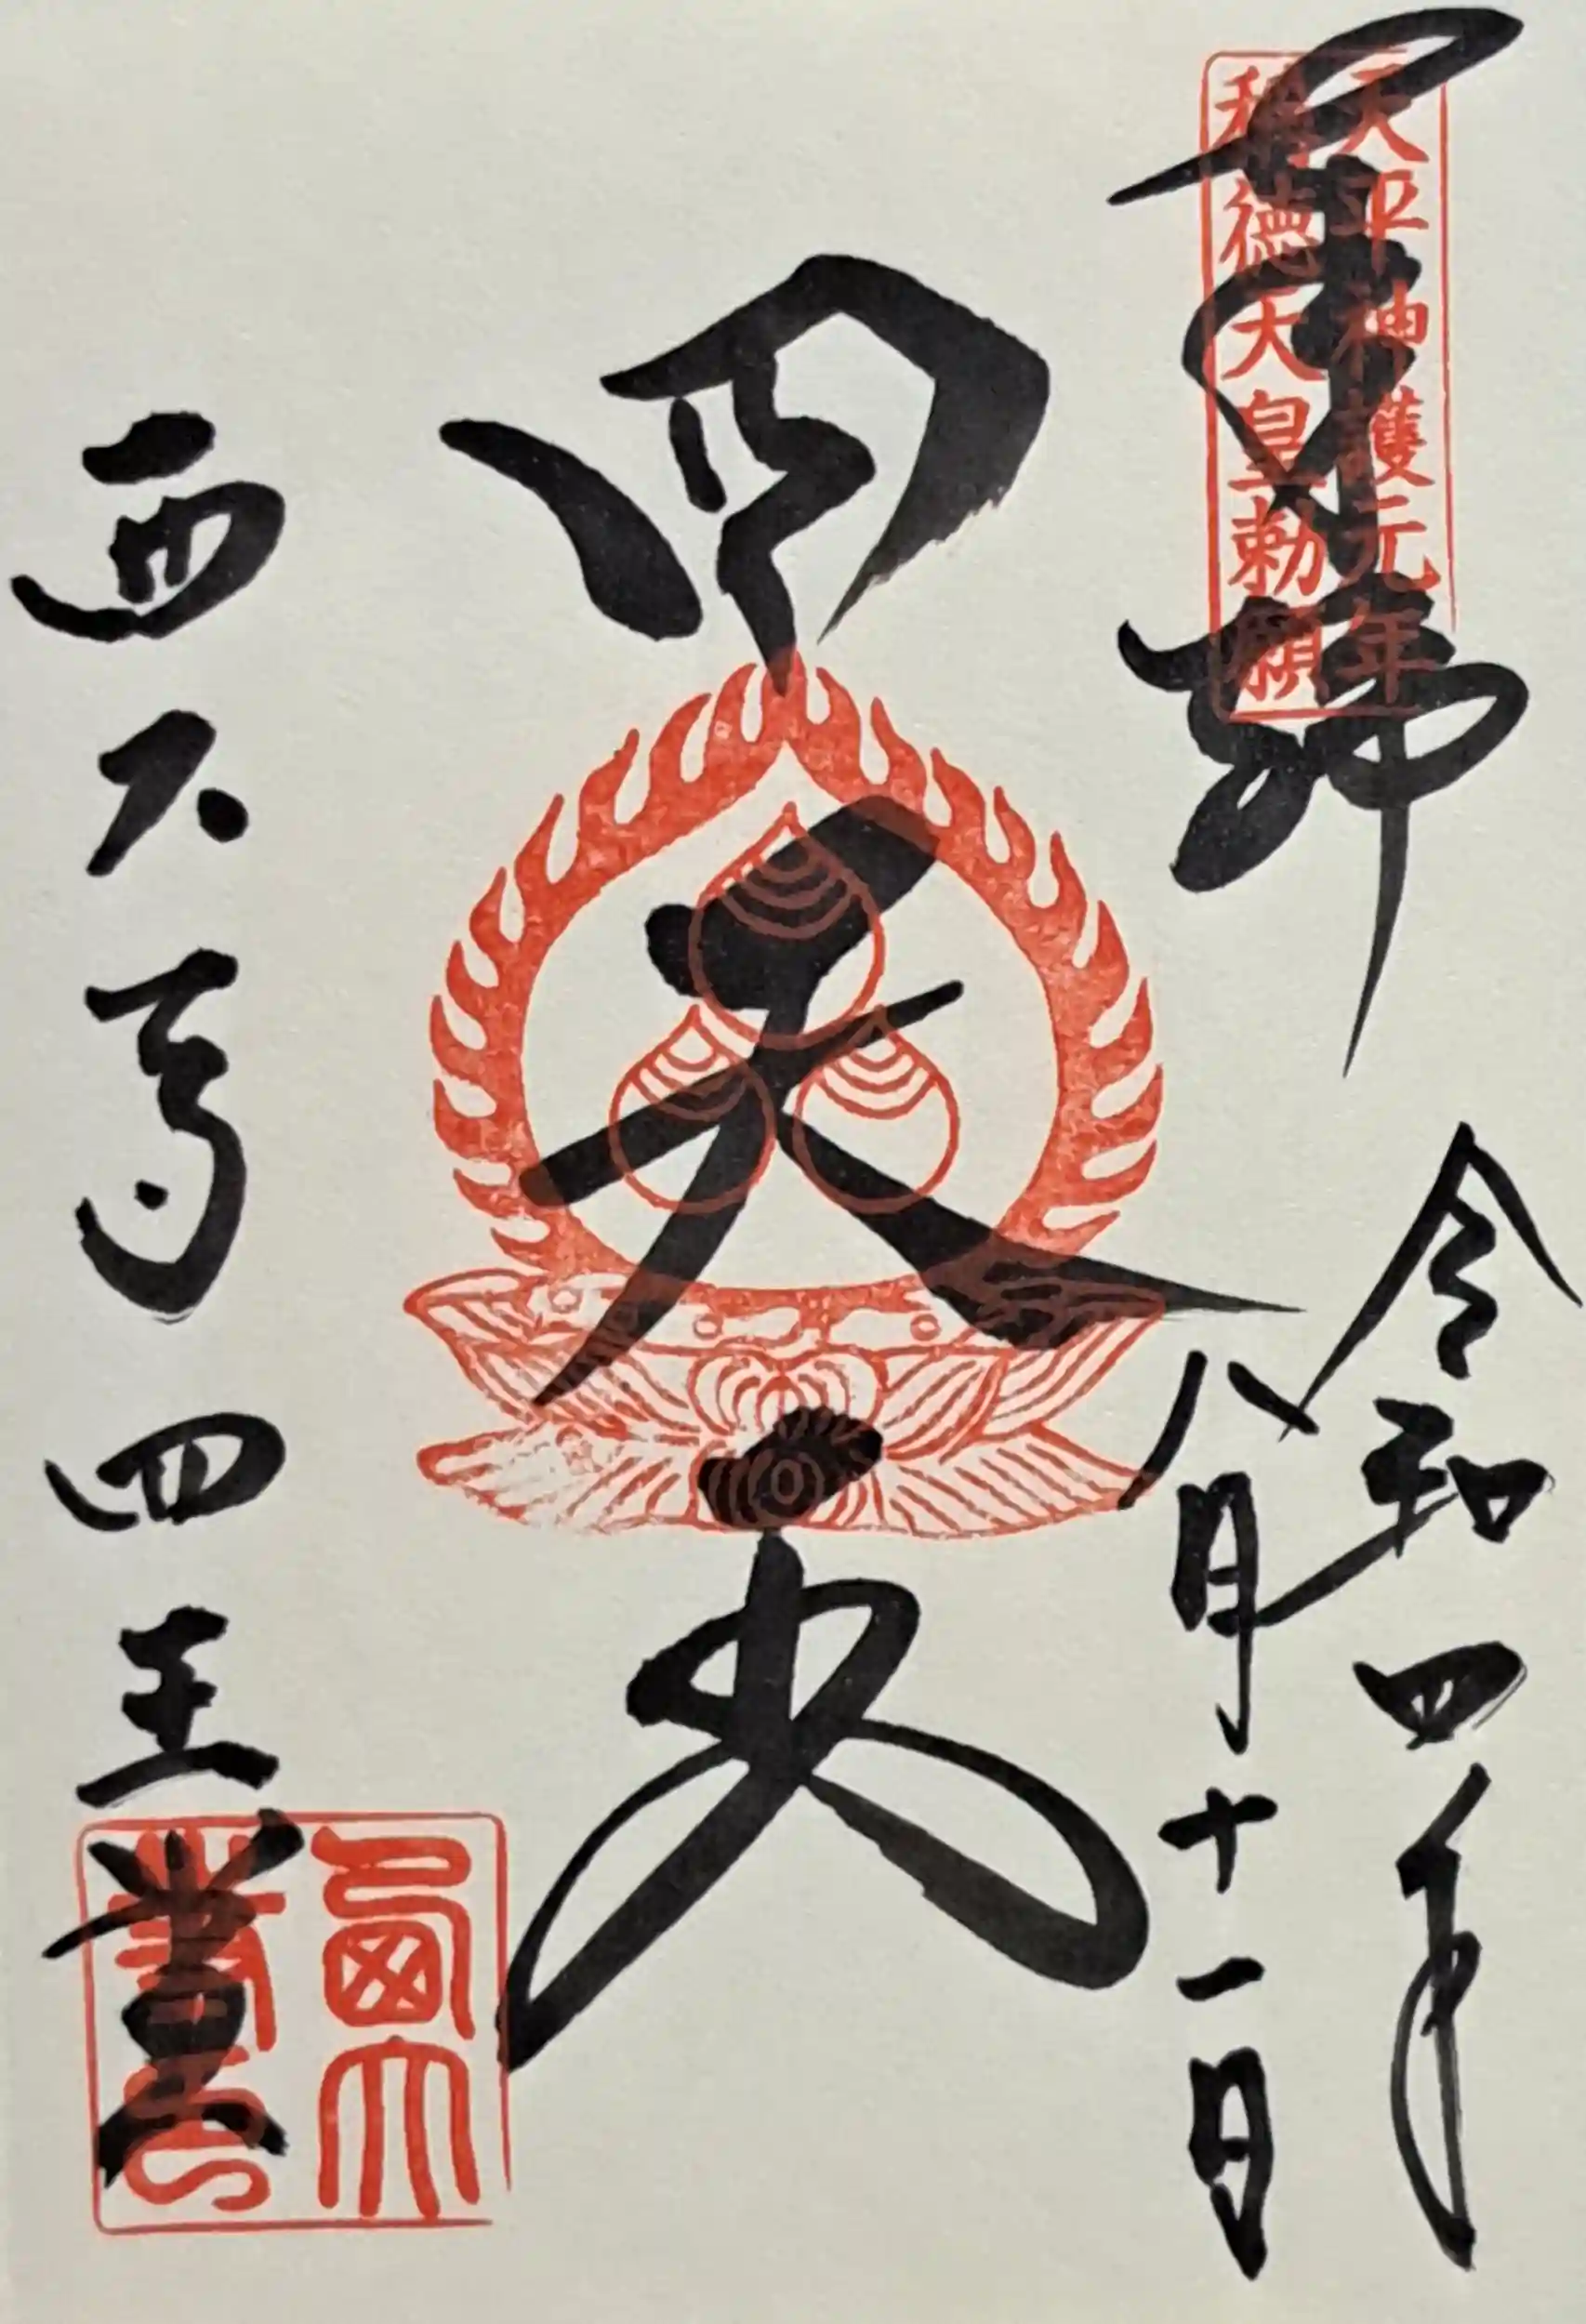 奉拝
天平神護元年
稱徳天皇勅願
令和四年
八月十一日
四天王
西大寺四王堂
西大寺